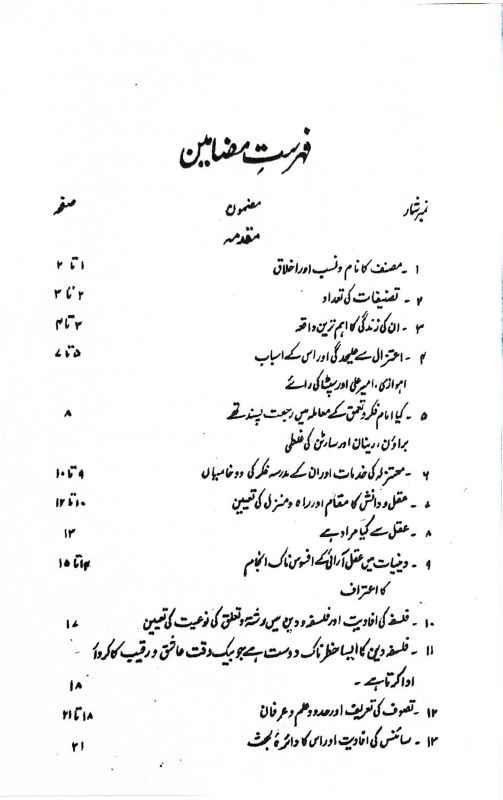 فہرستِ مضامین
نمبر شمار مضمون صفحہ
مقدمہ
۱ - مصنف کا نام و نسب اور اخلاق ۱ تا ۲
۲ - تصنیفات کی تعداد ۲ تا ۳
۳ - ان کی زندگی کا اہم ترین واقعہ ۳ تا ۴
۴ - اعتزال سے علیحدگی اور اس کے اسباب ۵ تا ۷
اہوازی، امیر علی اور سپٹا کی رائے
۵ - کیا امام فکر و تعمق کے معاملہ میں رجعت پسند تھے ۸
براؤن، رینان اور سارٹن کی غلطی
۶ - معتزلہ کی خدمات اور ان کے مدرسہ فکر کی دو خامیاں ۹ تا ۱۰
۷ - عقل و دانش کا مقام اور راہ و منزل کی تعیین ۱۰ تا ۱۲
۸ - عقل سے کیا مراد ہے ۱۳
۹ - دینیات میں عقل آرائی کے افسوس ناک انجام ۱۴ تا ۱۵
کا اعتراف
۱۰ - فلسفہ کی افادیت اور فلسفہ و دین میں رشتہ و تعلق کی نوعیت کی تعیین ۱۷
۱۱ - فلسفہ دین کا ایسا خطرناک دوست ہے جو بیک وقت عاشق و رقیب کا کردار
ادا کرتا ہے - ۱۸
۱۲ - تصوف کی تعریف اور حدود علم و عرفان ۱۸ تا ۲۱
۱۳ - سائنس کی افادیت اور اس کا دائرۂ بحث ۲۱